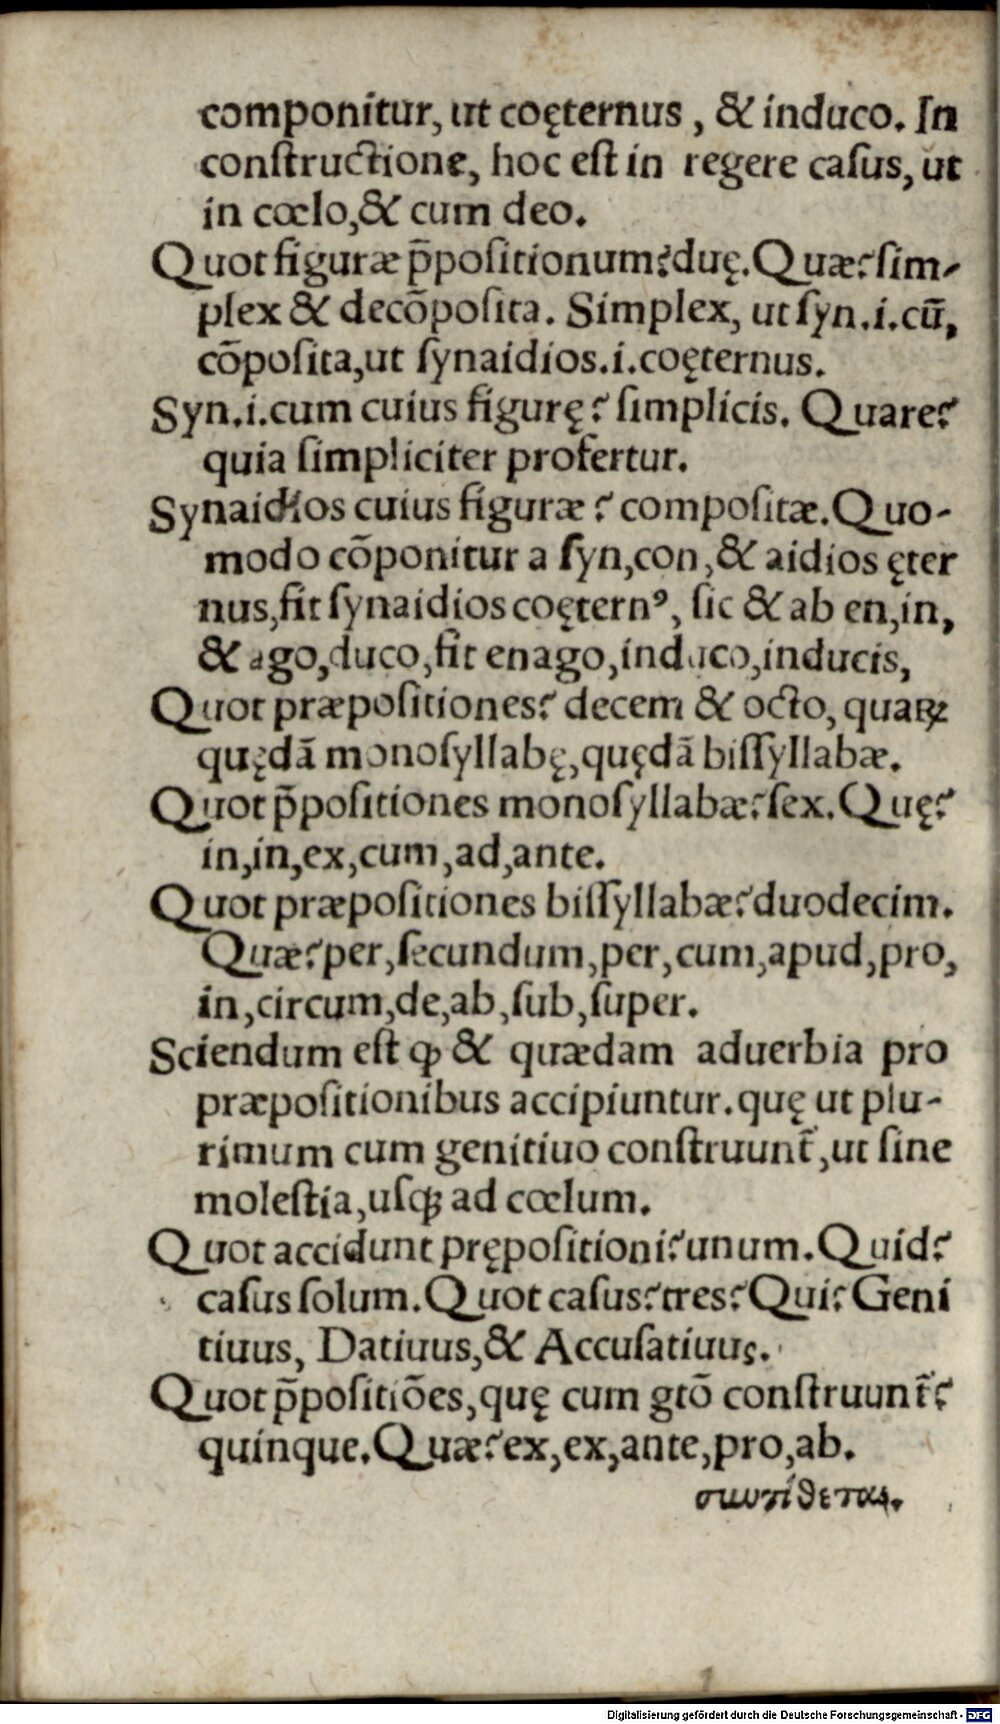 componitur, ut coęternus, & induco. In
conſtructione, hoc eſt in regere caſus, ut
in cœlo,& cum deo.
Quot figuræ p̄poſitionum? duę. Quæ? ſim-
plex & decōpoſita. Simplex, ut ſyn.i.cū,
cōpoſita,ut ſynaidios.i.coęternus.
Syn.i.cum cuius figurę? ſimplicis. Quare?
quia ſimpliciter profertur.
Synaidios cuius figuræ? compoſitæ. Quo-
modo cōponitur a ſyn,con,& aidios ęter
nus,fit ſynaidios coęternꝰ, ſic & ab en,in,
& ago,duco,fit enago,induco,inducis,
Quot præpoſitiones? decem & octo, quaꝝ
quędā monoſyllabę,quędā biſſyllabæ.
Quot p̄poſitiones monoſyllabæ? ſex. Quę?
in,in,ex,cum,ad,ante.
Quot præpoſitiones biſſyllabæ? duodecim.
Quæ? per,ſecundum,per,cum,apud,pro,
in,circum,de,ab,ſub,ſuper.
Sciendum eſt ꝙ & quædam aduerbia pro
præpoſitionibus accipiuntur. quę ut plu-
rimum cum genitiuo conſtruunt̃,ut ſine
moleſtia,uſqꝫ ad cœlum.
Quot accidunt prępoſitioni? unum. Quid?
caſus ſolum. Quot caſus? tres? Qui? Geni
tiuus, Datiuus,& Accuſatiuus.
Quot p̄poſitiōes,quę cum gtō conſtruunt̃?
quinque. Quæ? ex,ex,ante,pro,ab.
συντίθεται.
Digitalisierung gefördert durch die Deutsche Forschungsgemeinschaft - DFG